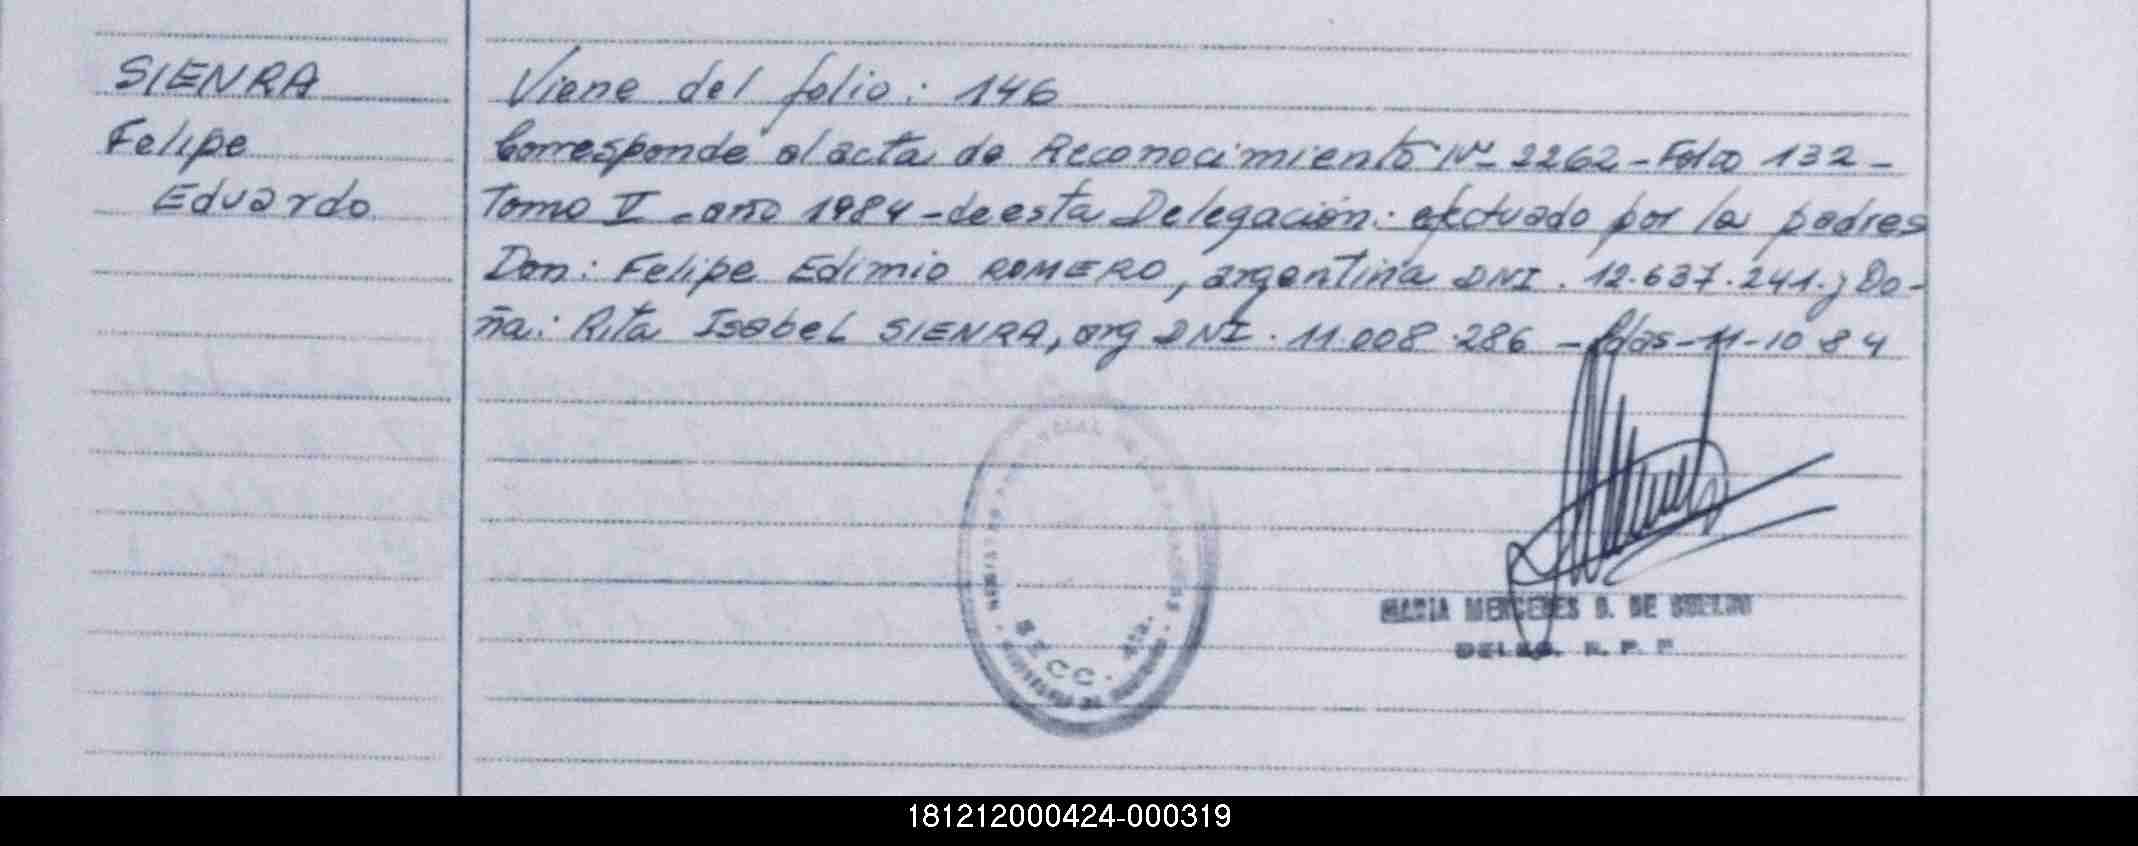 SIENRA
Felipe
Eduardo
Viene del folio: 146
Corresponde al acta de Reconocimiento Nº 2262 - Folio 132 -
Tomo V - año 1984 - de esta Delegación: efectuado por la padres
Don: Felipe Edimio ROMERO, argentina DNI. 12.637.241.; Do-
ña: Rita Isabel SIENRA, arg DNI. 11.008.286 - Pdas - 11-10 84
SECC. 4ta.
MARIA MERCEDES DE
DELEG. R. P. P.
181212000424-000319